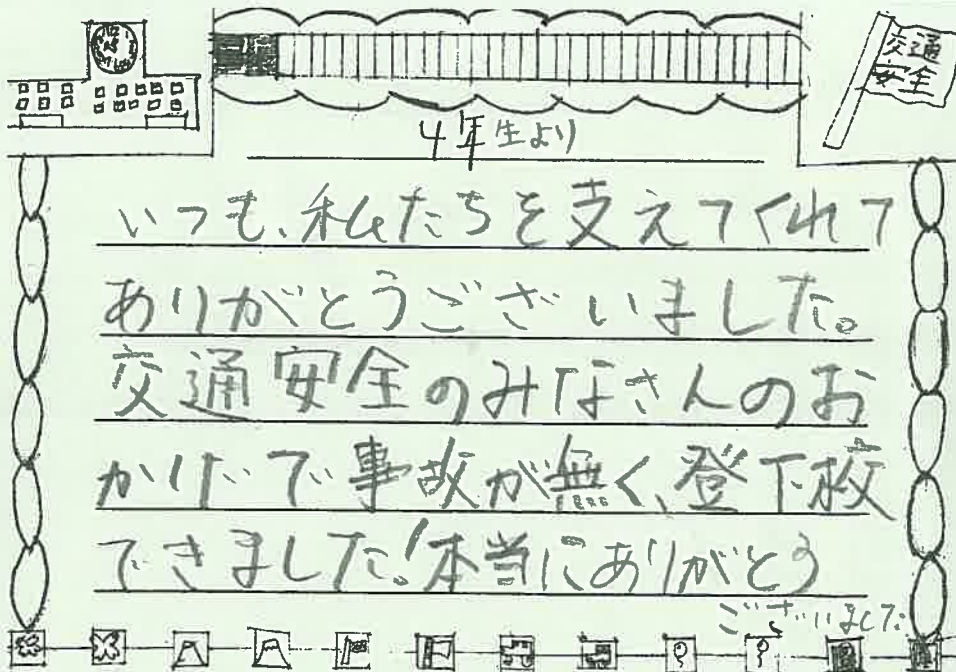 交通
安全
4年生より
いつも、私たちを支えてくれて
ありがとうございました。
交通安全のみなさんのお
かげで事故が無く、登下校
できました!本当にありがとう
ございました